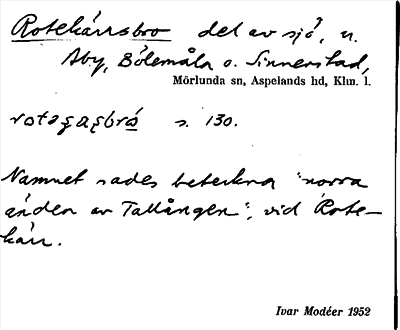 Rotekärrsbro del av sjö, n.
Åby, Bölemåla o. Sinnerstad,
Mörlunda sn, Aspelands hd, Klm. l.
s. 130.
Namnet sades beteckna "norra
änden av Tallången", vid Rote-
kärr.
Ivar Modéer 1952